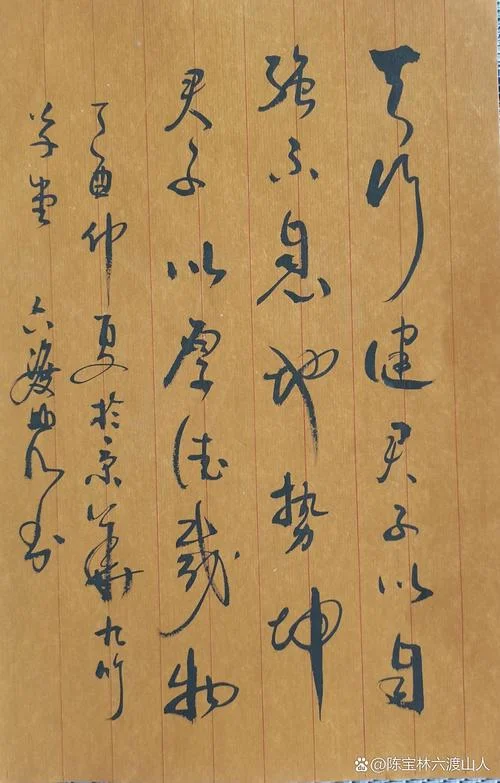 天行健君子以自
强不息地势坤
君子以厚德载物
丁酉仲夏於京华九竹
草堂 六渡山人书
@陈宝林六渡山人